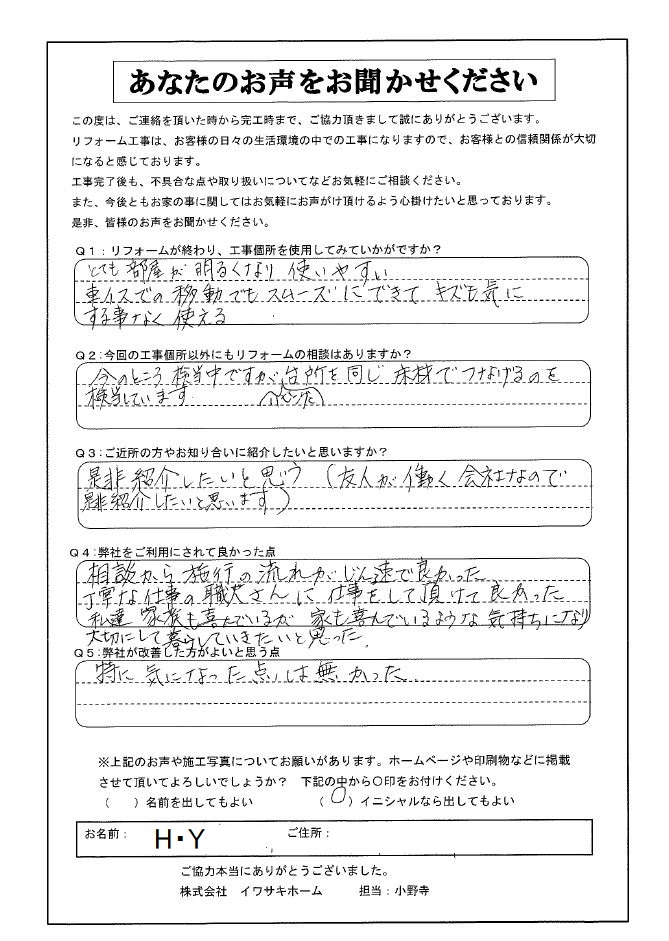 あなたのお声をお聞かせください
この度は、ご連絡を頂いた時から完工時まで、ご協力頂きまして誠にありがとうございます。
リフォーム工事は、お客様の日々の生活環境の中での工事になりますので、お客様との信頼関係が大切
になると感じております。
工事完了後も、不具合な点や取り扱いについてなどお気軽にご相談ください。
また、今後ともお家の事に関してはお気軽にお声がけ頂けるよう心掛けたいと思っております。
是非、皆様のお声をお聞かせください。
Q1：リフォームが終わり、工事個所を使用してみていかがですか？
とても部屋が明るくなり使いやすい
車イスでの移動でもスムーズにできてキズも気に
する事なく使える
Q2：今回の工事個所以外にもリフォームの相談はありますか？
今のところ検当中ですが台所を同じ床材でつなげるのを
検当しています
Q3：ご近所の方やお知り合いに紹介したいと思いますか？
是非紹介したいと思う（友人が働く会社なので
是非紹介したいと思います）
Q4：弊社をご利用にされて良かった点
相談から施行の流れがじん速で良かった
丁寧な仕事の職人さんに仕事をして頂けて良かった
私達家族も喜んでいるが家も喜んでいるような気持ちになり
大切にして暮らしていきたいと思った。
Q5：弊社が改善した方がよいと思う点
特に気になった点は無かった
※上記のお声や施工写真についてお願いがあります。ホームページや印刷物などに掲載
させて頂いてよろしいでしょうか？　下記の中から○印をお付けください。
（　）名前を出してもよい　（○）イニシャルなら出してもよい
お名前：　H・Y　ご住所：
ご協力本当にありがとうございました。
株式会社　イワサキホーム　担当：小野寺